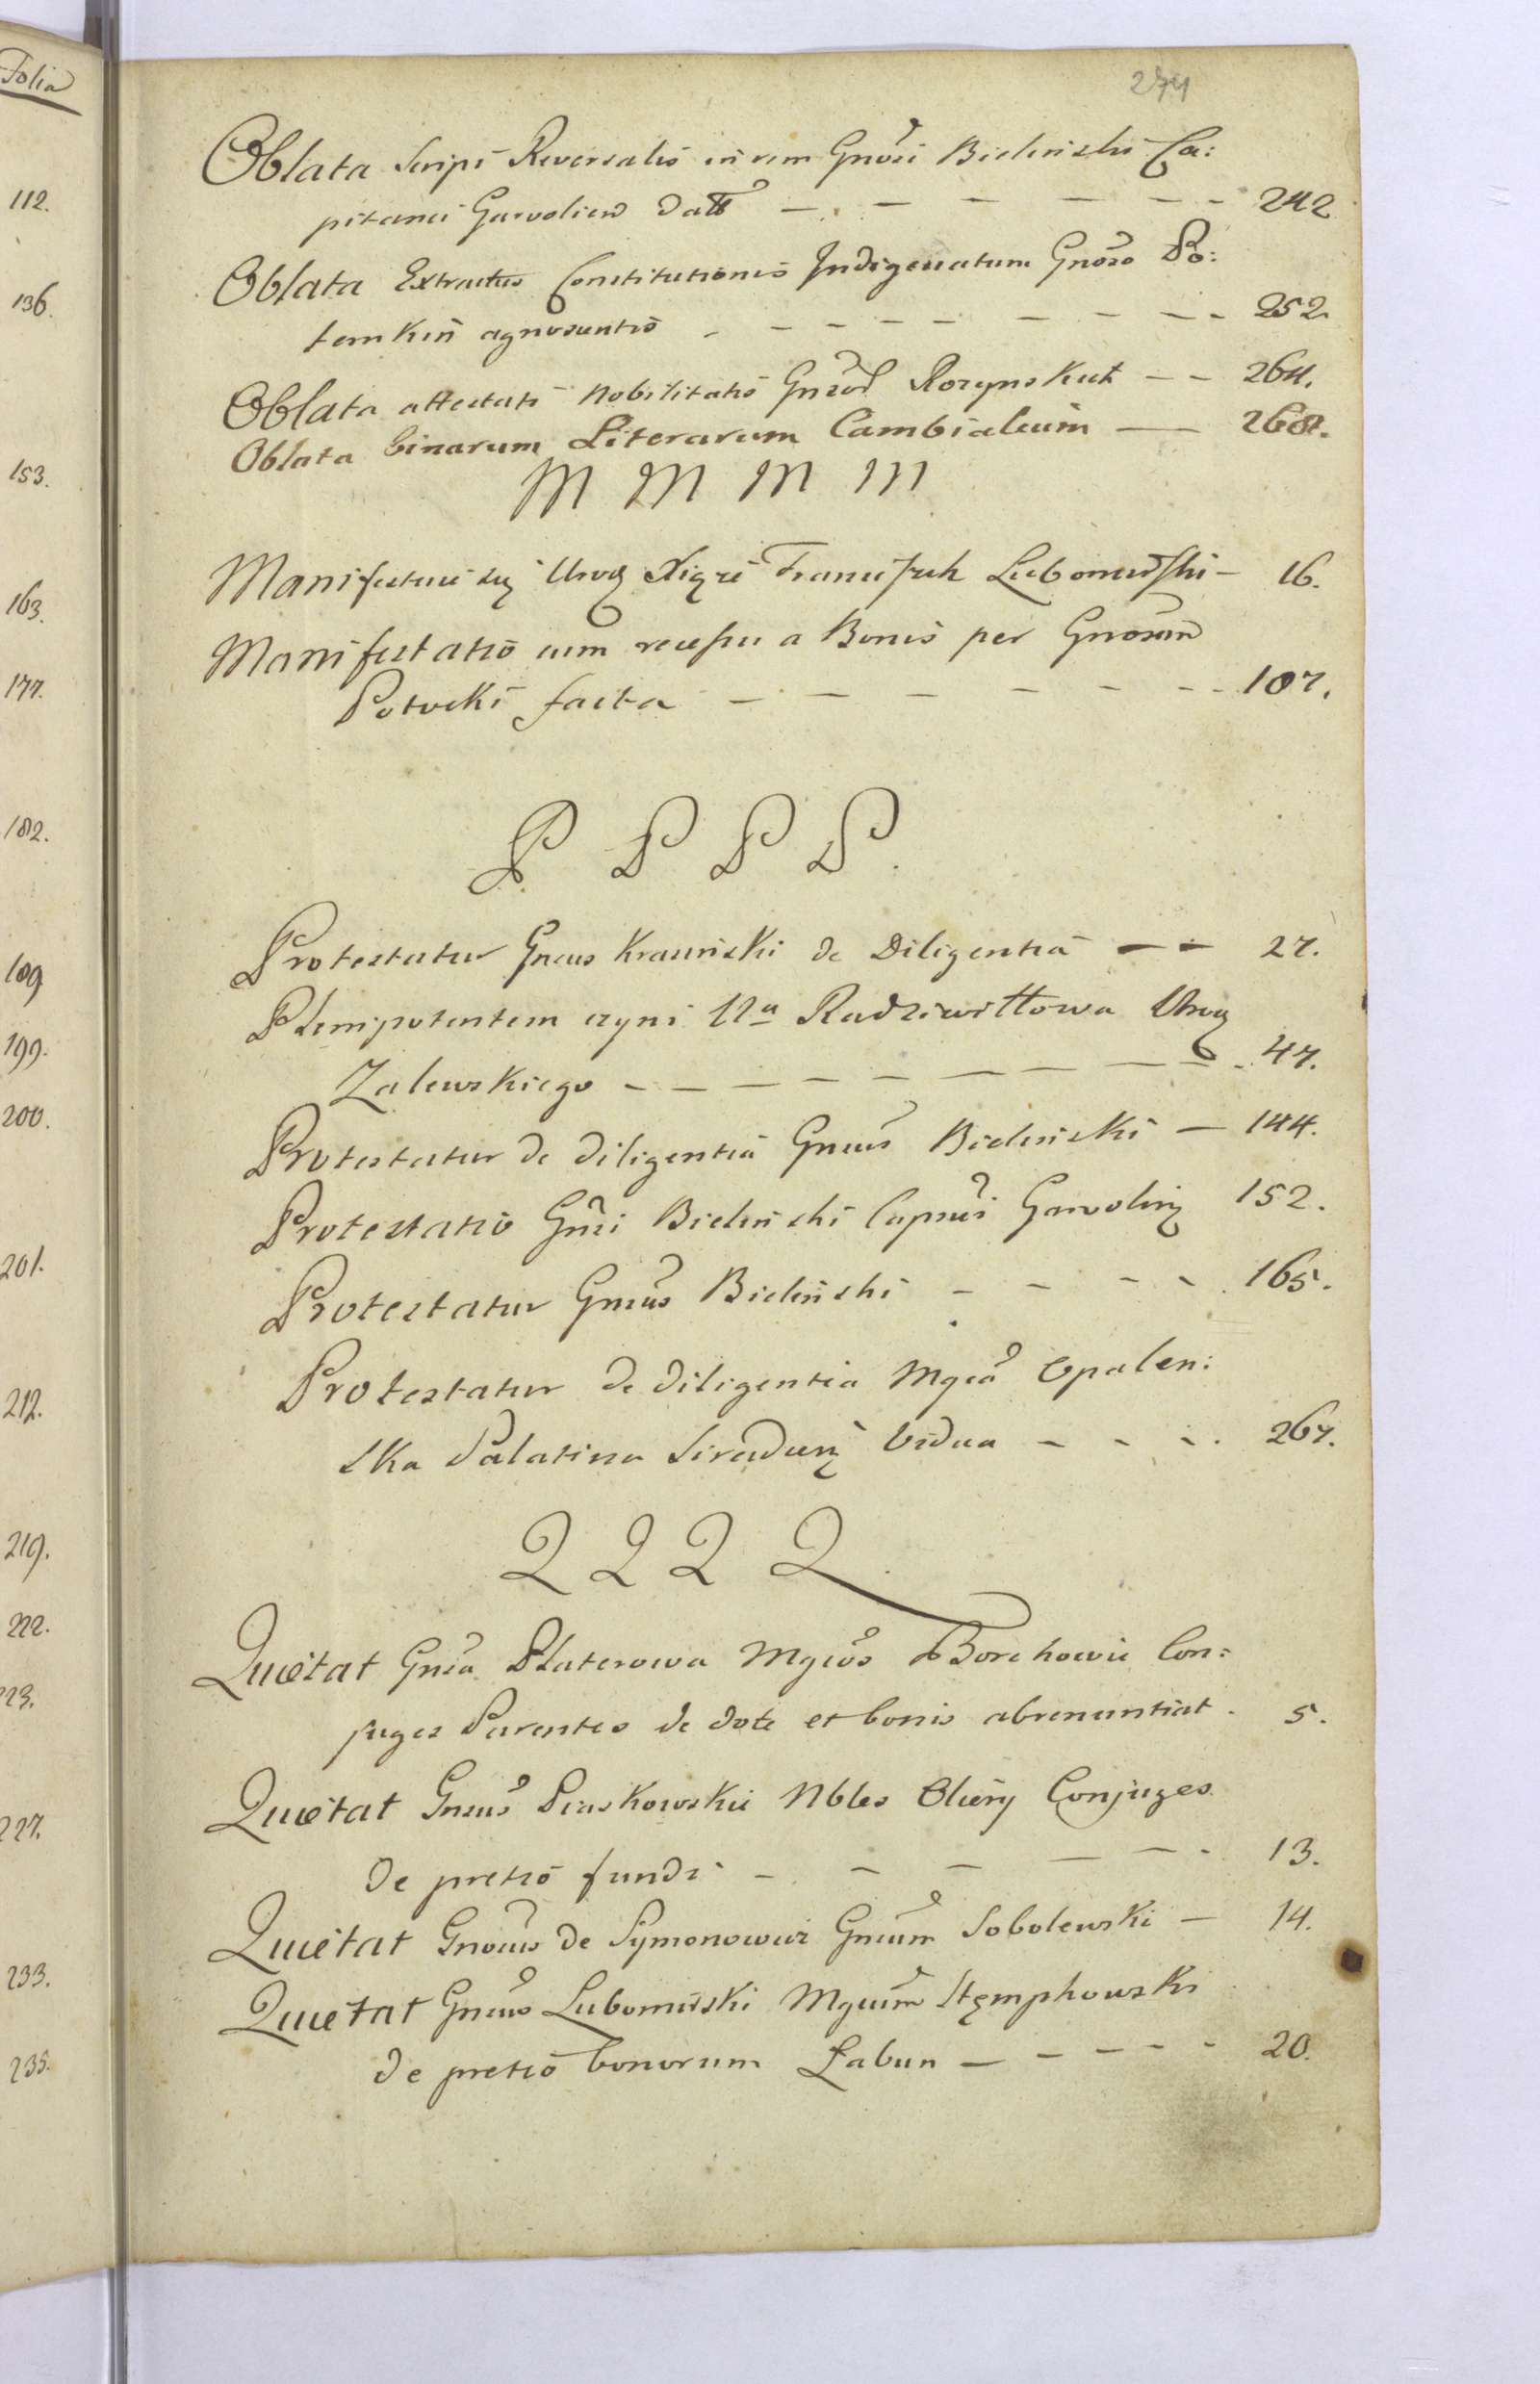 Folia
112.
136.
153.
163.
177.
182.
189
199.
200.
201.
212.
219.
222.
223.
227.
233.
235.
274
Oblata Scripti Reversalis in rem Gnosi Bielinski Ca:
pitanei Garvolien datt 242
Oblata Extractus Constitutionis Indigenatum Gnoso Po:
temkin agnoscentis 252.
Oblata attestati Nobilitatis Rozynskich 264.
Oblata binarum Literarum Cambialium 268.
M M M M
Manifestuie się Urod Xiąze Franciszek Lubomirski 16.
Manifestatio cum recessu a Bonis per Gnosum
Potocki facta 187.
P P P P.
Protestatur Gneus Krasinski de Diligentia 27.
Plenipotentem czyni Radziwiłłowa Urog
Zalewskiego 47.
Protestatur de diligentia Gneus Bielinski 144.
Protestatio Gnsi Bielinski Capnei Garvolin 152.
Protestatur Gnsus Bielinski 165.
Protestatur de diligentia Mgca Opalen:
ska Palatina Siradien Vidua 267.
Q Q Q Q
Quietat Gnsa Platerowa Mgcos Borchowie Con:
juges Parentes de dote et bonis abrenuntiat. 5.
Quietat Gnsus Piaskowskie Nbles Conjuges
de pretio fundi 13.
Quietat Gnosus de Symonowicz Gneum Sobolewski 14.
Quietat Gneus Lubomirski Mgcum Stępkowski
de pretio bonorum Łabun 20.